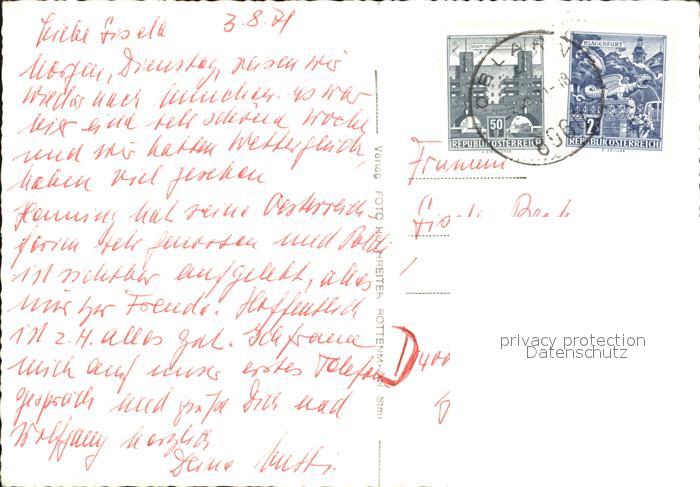 Liebe Gisela 3.8.71
Morgen, Dienstag, reisen wir
wieder nach München. Es war
hier eine sehr schöne Woche
und wir hatten Wetterglück,
haben viel gesehen
Henning hat seine Oesterreich-
ferien sehr genossen und
ist sichtbar aufgelebt, alles
mir zur Freude. Hoffentlich
ist z.H. alles gut. Ich freue
mich auf unser erstes Telefon
gespräch und grüße Dich und
Wolfgang herzlich
Deine Mutti.
Verlag FOTO SCHREITER ROTTENMANN Stmk
50
REPUBLIK ÖSTERREICH
KLAGENFURT
2
REPUBLIK ÖSTERREICH
ÖBLARN
8960
Gisela
D 400
privacy protection
Datenschutz